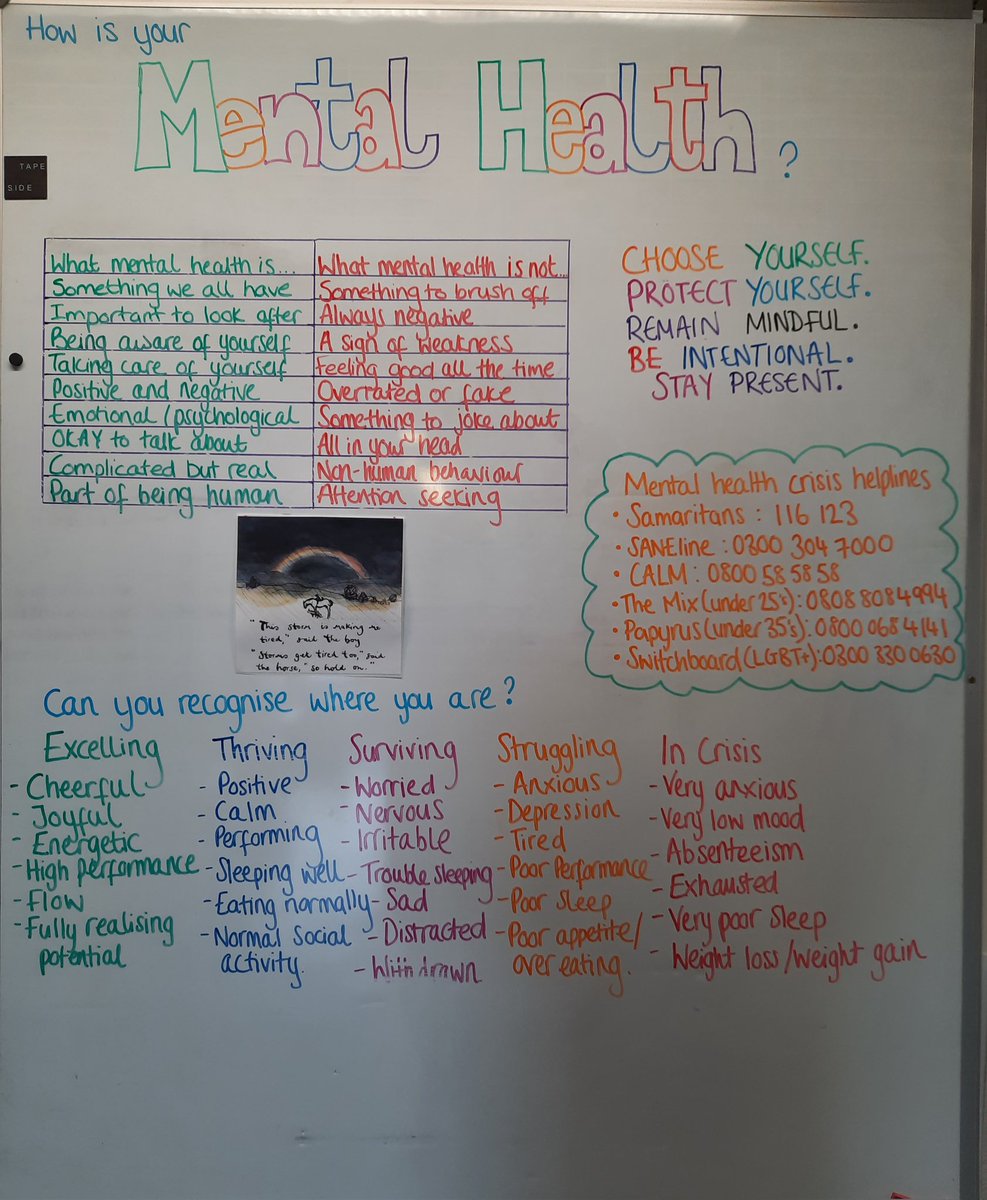 How is your
Mental Health?
TAPE
SIDE
What mental health is... What mental health is not...
Something we all have Something to brush off
Important to look after Always negative
Being aware of yourself A sign of weakness
Taking care of yourself Feeling good all the time
Positive and negative Overrated or fake
Emotional/psychological Something to joke about
OKAY to talk about All in your head
Complicated but real Non-human behaviour
Part of being human Attention seeking
CHOOSE YOURSELF.
PROTECT YOURSELF.
REMAIN MINDFUL.
BE INTENTIONAL.
STAY PRESENT.
Mental health crisis helplines
• Samaritans : 116 123
• SANEline : 0300 304 7000
• CALM : 0800 58 58 58
• The Mix (under 25's) : 0808 808 4994
• Papyrus (under 35's) : 0800 068 4141
• Switchboard (LGBT+) : 0300 330 0630
"This storm is making me
tired," said the boy
"Storms get tired too," said
the horse, "so hold on."
Can you recognise where you are?
Excelling
- Cheerful
- Joyful
- Energetic
- High performance
- Flow
- Fully realising
potential
Thriving
- Positive
- Calm
- Performing
- Sleeping well
- Eating normally
- Normal Social
activity.
Surviving
- Worried
- Nervous
- Irritable
- Trouble sleeping
- Sad
- Distracted
- Withdrawn
Struggling
- Anxious
- Depression
- Tired
- Poor Performance
- Poor Sleep
- Poor appetite/
over eating.
In Crisis
- Very anxious
- Very low mood
- Absenteeism
- Exhausted
- Very poor sleep
- Weight loss/weight gain